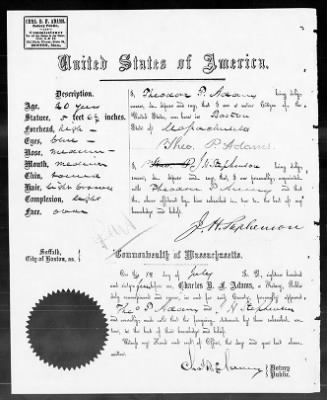 CHAS. B. F. ADAMS,
Notary Public,
Commissioner
BOSTON, Mass.
United States of America.
Description.
I, Theodore P. Adams being duly
sworn, do depose and say, that I am a native Citizen of the
United States, was born in Boston
State of Massachusetts
Theo. P. Adams
Age, 20 years
Stature, 5 feet 6½ inches.
Forehead, high
Eyes, blue
Nose, medium
Mouth, medium
Chin, round
Hair, light brown
Complexion, light
Face, oval
I, J. H. Stephenson being duly
sworn, do depose and say, that I am personally acquainted
with Theodore P. Adams and that
the above affidavit has been subscribed to by him, and is true to the best of my
knowledge and belief.
J. H. Stephenson
Suffolk,
City of Boston, ss.
Commonwealth of Massachusetts.
On the 18 day of July A. D. eighteen hundred
and sixty before me Charles B. F. Adams, a Notary Public,
duly commissioned and sworn, in and for said County, personally appeared
Theo P Adams and J. H. Stephenson
and severally made oath that the foregoing statements by them subscribed are
true, to the best of their knowledge and belief.
Witness my Hand and seal of Office, the day and year last above
written.
Chas B F Adams Notary
Public.